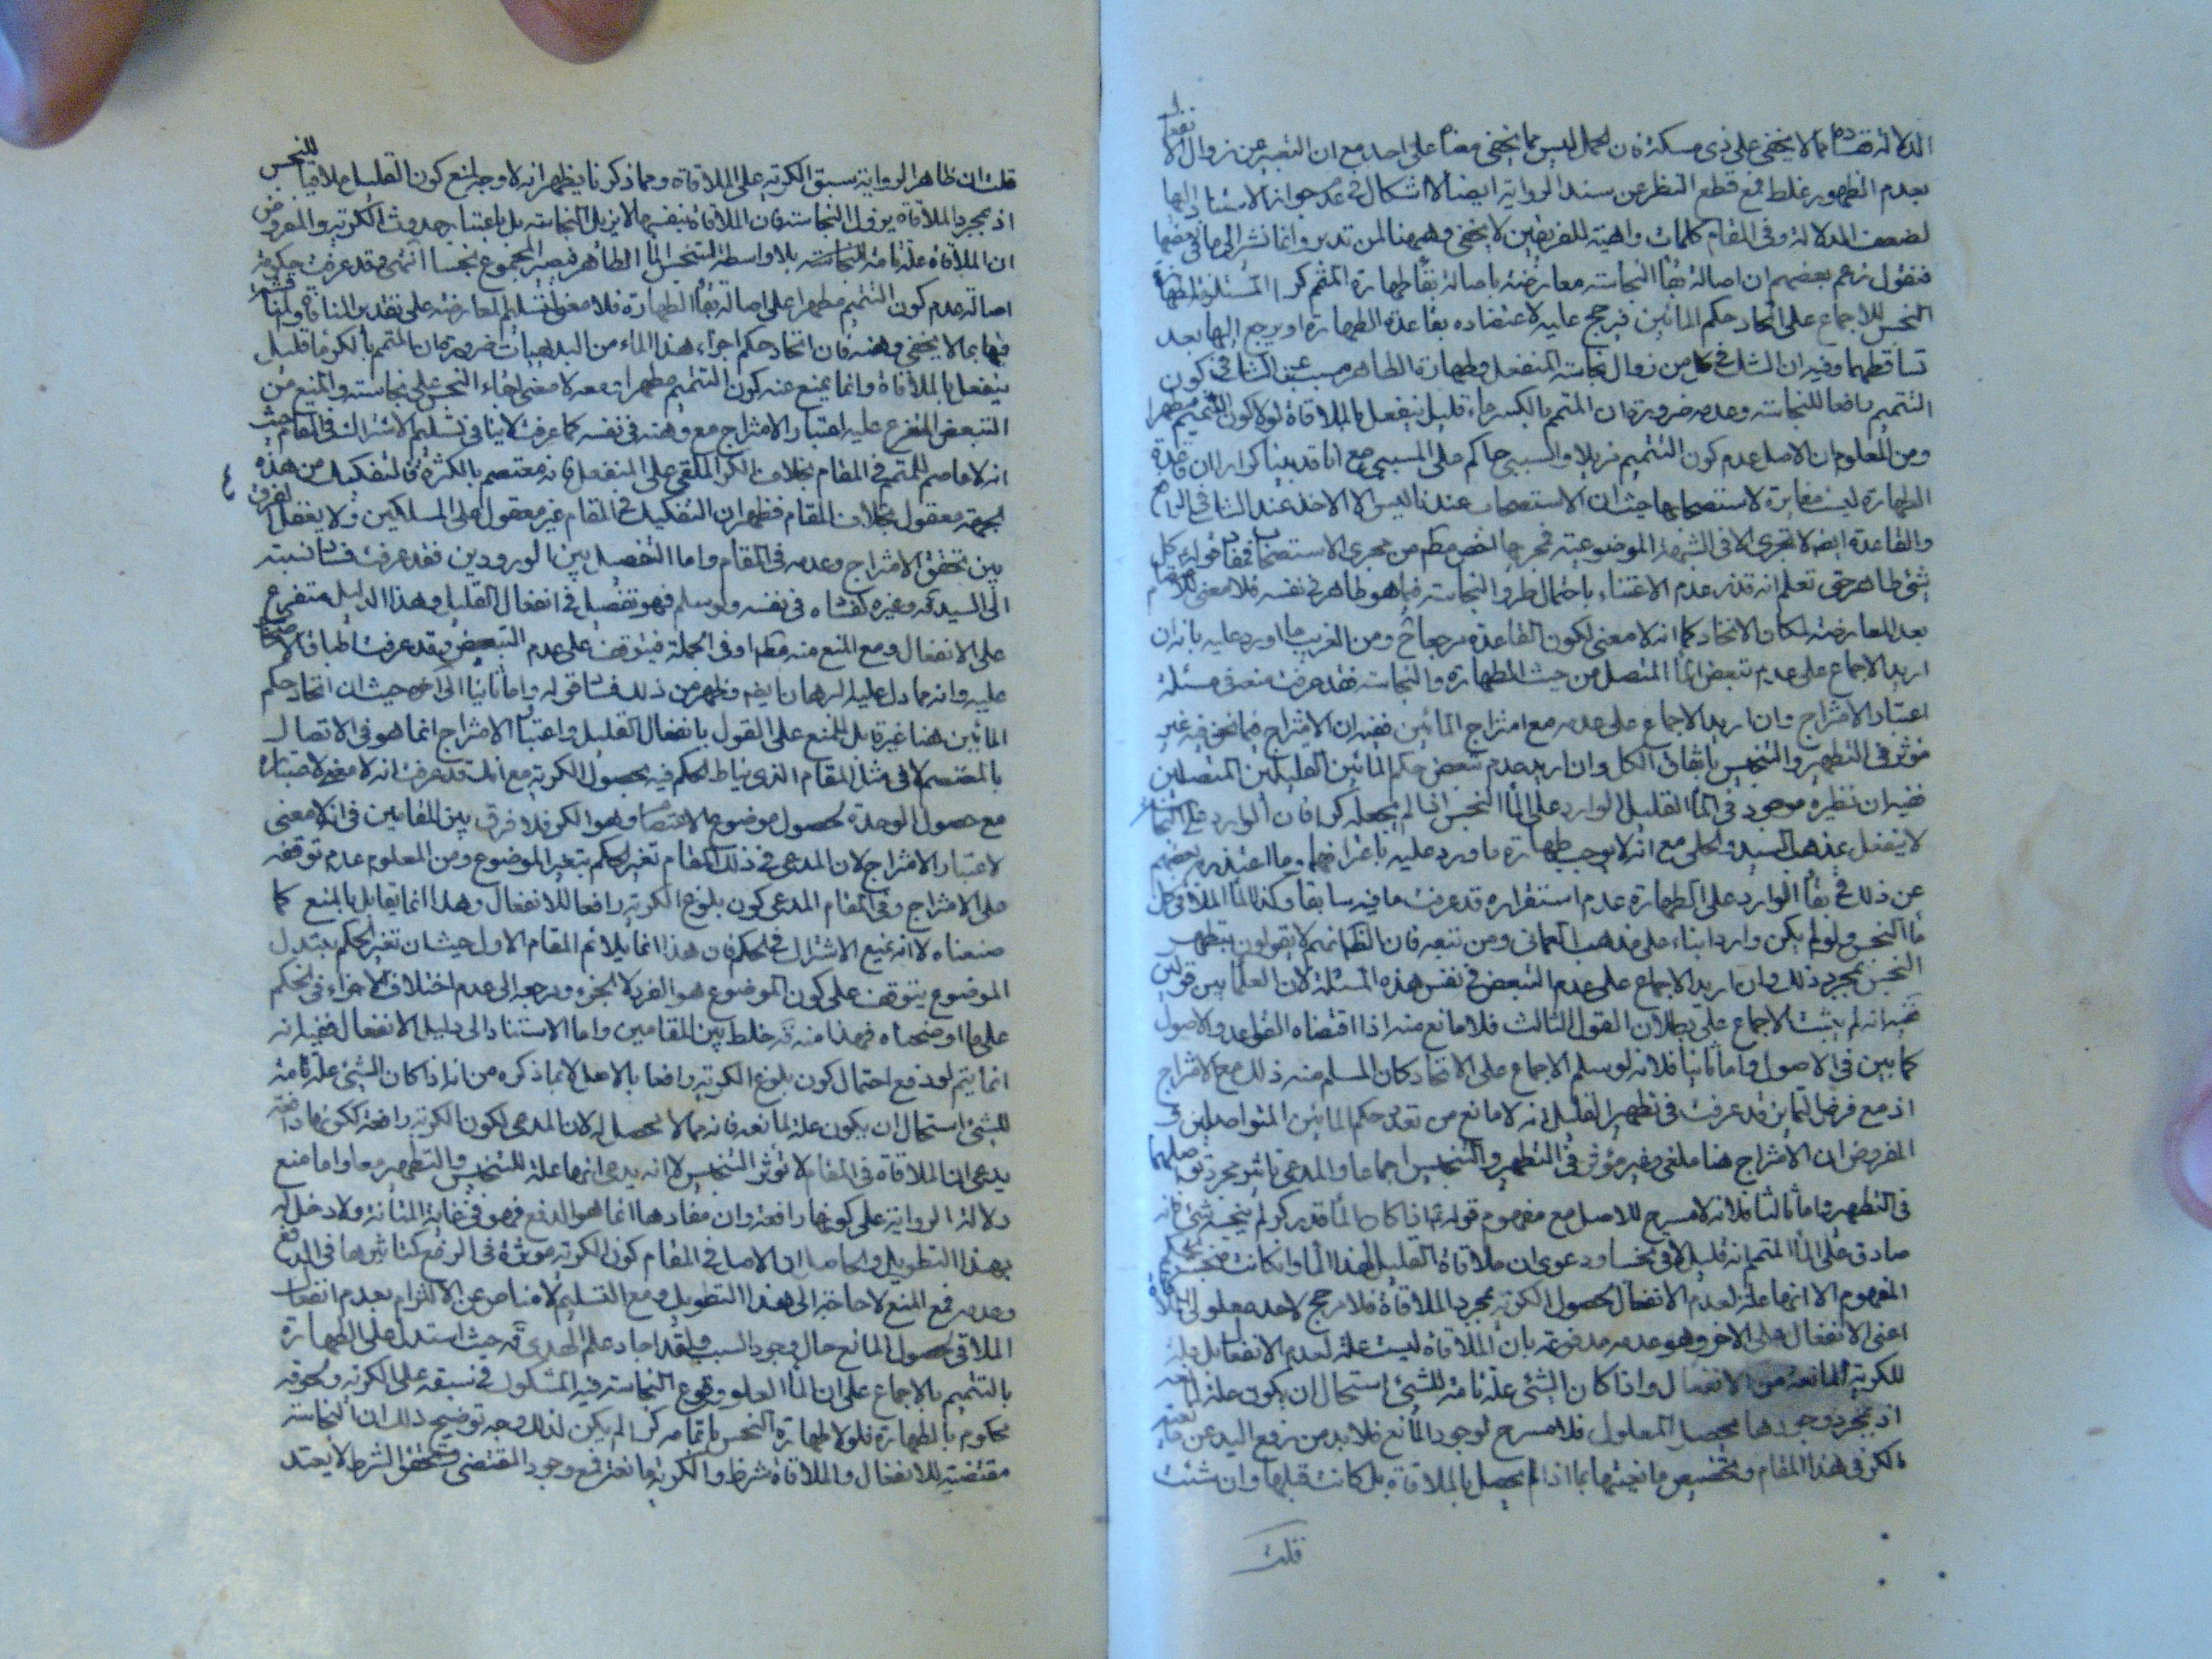 الدلالة فتساده مما لا يخفى على ذي مسكة فان المجمل ليس مما يخفى معناه على احد مع ان التعبير عن زوال
بعدم الظهور غلط فمع قطع النظر عن سند الرواية ايضا لا اشكال في عدم جواز الاستناد اليها
لضعف الدلالة وفي المقام كلمات واهية للفريقين لا يخفى وهنها لمن تدبر وانما نشير الى ما في بعضها
فنقول زعم بعضهم ان اصالة بقاء النجاسة معارضة باصالة بقاء طهارة المتمم كرا
النجس للاجماع على اتحاد حكم المائين فيرجح عليه لاعتضاده بقاعدة الطهارة او يرجع اليها بعد
تساقطهما وفيه ان الشك في كل من زوال نجاسة المنفعل وطهارة الطاهر مسبب عن الشك في كون
التتميم رافعا للنجاسة وعدمه ضرورة ان المتمم بالكسر ماء قليل ينفعل بالملاقاة لولا كون التتميم مطهرا
ومن المعلوم ان الاصل عدم كون التتميم مزيلا والسببي حاكم على المسببي مع انا قد بينا كرارا ان قاعدة
الطهارة ليست مغايرة لاستصحابها حيث ان الاستصحاب عندنا ليس الا الاخذ عند الشك في
والقاعدة ايضا لا تجري الا في الشبهة الموضوعية فمجريها اخص مطلقا من مجرى الاستصحاب فمفاد قوله كل
شيء طاهر حتى تعلم انه قذر عدم الاعتناء باحتمال طرو النجاسة فيما هو طاهر في نفسه فلا معنى
بعد المعارضة لمكان الاتحاد كما انه لا معنى لكون القاعدة مرجعا ومن الغريب ما اورد عليه بانه ان
اريد الاجماع على عدم تبعض الماء المتصل من حيث الطهارة والنجاسة فقد عرفت منعه في مسئلة
اعتبار الامتزاج وان اريد الاجماع على عدمه مع امتزاج المائين ففيه ان الامتزاج فيما نحن فيه غير
مؤثر في التطهير والتنجيس باتفاق الكل وان اريد عدم تبعض حكم المائين القليلين المتصلين
ففيه ان نظيره موجود في الماء القليل الوارد على الماء النجس اذا لم يجعله كرا فان الوارد على النجاسة
لا ينفعل عند السيد الحلي مع انه لا يوجب طهارة ما ورد عليه باعترافهما وما اعتذر به بعضهم
عن ذلك في بقاء الوارد على الطهارة عدم استقراره قد عرفت ما فيه سابقا وكذا الماء الملاقى
ماء النجس ولو لم يكن واردا بناء على مذهب العماني ومن تبعه فان الظاهر انهم لا يقولون بتطهير
النجس بمجرد ذلك وان اريد الاجماع على عدم التبعض في نفس هذه المسئلة لان العلماء بين قولين
ففيه انه لم يثبت الاجماع على بطلان القول الثالث فلا مانع منه اذا اقتضاه القواعد والاصول
كما بين في الاصول واما ثانيا فلانه لو سلم الاجماع على الاتحاد كان المسلم منه ذلك مع الامتزاج
اذ مع فرض التمايز قد عرفت في تطهير القليل انه لا مانع من تعدد حكم المائين المتواصلين
المفروض ان الامتزاج هنا ملغى وغير مؤثر في التطهير والتنجيس اجماعا والمدعى تاثير مجرد تواصلهما
في التطهير واما ثالثا فلانه لا مسرح للاصل مع مفهوم قوله اذا كان الماء قدر كر لم ينجسه شيء فانه
صادق على الماء المتمم انه قليل لاقى نجسا ودعوى ان ملاقاة القليل لهذا الماء وان كانت
المفهوم الا انها علة لعدم الانفعال لحصول الكرية بمجرد الملاقاة فلا مرجح لاحد معلولي الملاقاة
اعني الانفعال على الاخر وهو عدمه مدفوعة بان الملاقاة ليست علة لعدم الانفعال بل علة
للكرية المانعة من الانفعال واذا كان الشيء علة تامة للشيء استحال ان يكون علة
اذ بمجرد وجودها يحصل المعلول فلا مسرح لوجود المانع فلا بد من رفع اليد عن
الكر في هذا المقام وتخصيص مانعيتها بما اذا لم يحصل بالملاقاة بل كانت قبلها وان شئت
قلت
قلت ان ظاهر الرواية سبق الكرية على الملاقاة ومما ذكرنا يظهر انه لا وجه لمنع كون القليل ملاقيا للنجس
اذ بمجرد الملاقاة يزول النجاسة فان الملاقاة بنفسها لا يزيل النجاسة بل باعتبار حدوث الكرية والمفروض
ان الملاقاة علة تامة للنجاسة بلا واسطة لتنجس الماء الطاهر فيصير المجموع نجسا انتهى وقد عرفت حكومة
اصالة عدم كون التتميم مطهرا على اصالة بقاء الطهارة فلا معنى لتسليم المعارضة على تقدير المنافاة
فيها مما لا يخفى وهنه فان اتحاد حكم اجزاء هذا الماء من البديهيات ضرورة ان المتمم بالكسر ماء قليل
ينفعل بالملاقاة وانما يمنع عنه كون التتميم مطهرا ومعه لا معنى لبقاء النجس على نجاسته والمنع من
التبعض المفرع عليه اعتبار الامتزاج مع وهنه في نفسه كما عرفت لا ينافي تسليم الاشتراك في المقام حيث
انه لا عاصم للمتمم في المقام بخلاف الكر الملقى على المنفعل فانه معتصم بالكثرة فالتفكيك من هذه
الجهة معقول بخلاف المقام فظهر ان التفكيك في المقام غير معقول على المسلكين ولا يعقل الفرق
بين تحقق الامتزاج وعدمه في المقام واما التفصيل بين الورودين فقد عرفت فساد نسبته
الى السيد وغيره كفساده في نفسه ولو سلم فهو تفصيل في انفعال القليل وهذا الدليل متفرع
على الانفعال ومع المنع منه مطلقا او في الجملة فيتوقف على عدم التبعض وقد عرفت اطباق
عليه وانه مما دل عليه البرهان ايضا وظهر من ذلك فساد قوله واما ثانيا الى اخره حيث ان اتحاد حكم
المائين هنا غير قابل للمنع على القول بانفعال القليل واعتبار الامتزاج انما هو في الاتصال
بالمعتصم لا في مثل المقام الذي يناط الحكم فيه بحصول الكرية مع انك قد عرفت انه لا معنى لاعتباره
مع حصول الوحدة لحصول موضوع الاعتصام وهو الكر فلا فرق بين المقامين في انه لا معنى
لاعتبار الامتزاج لان المدعى في ذلك المقام تغير الحكم بتغير الموضوع ومن المعلوم عدم توقفه
على الامتزاج وفي المقام المدعى كون بلوغ الكرية رافعا للانفعال وهذا انما يقابل بالمنع كما
صنعناه لا انه يمنع الاشتراك في الحكم فان هذا انما يلائم المقام الاول حيث ان تغير الحكم بتبدل
الموضوع يتوقف على كون الموضوع هو الفرد لا الجزء ومرجعه الى عدم اختلاف الاجزاء في الحكم
على ما اوضحناه فهذا منه خلط بين المقامين واما الاستناد الى دليل الانفعال ففيه انه
انما يتم لو دفع احتمال كون بلوغ الكرية رافعا بالاصل لا بما ذكره من انه اذا كان الشيء علة تامة
للشيء استحال ان يكون علة لمانعه فانه مما لا يحصل له لان المدعى لكون الكرية رافعة لا
يدعي ان الملاقاة في المقام لا تؤثر التنجيس لا انه يدعي انها علة للتنجيس والتطهير معا واما منع
دلالة الرواية على كونها رافعة وان مفادها انما هو الدفع فهو في غاية المتانة ولا دخل له
بهذا التطويل والحاصل ان الاصل في المقام كون الكرية مؤثرة في الرفع كتاثيرها في الدفع
وعدمه فمع المنع لا حاجة الى هذا التطويل ومع التسليم لا مناص عن الالتزام بعدم انفعال
الملاقي لحصول المانع حال وجود السبب ولقد اجاد علم الهدى حيث استدل على الطهارة
بالتتميم بالاجماع على ان الماء المعلوم وقوع النجاسة فيه المشكوك في سبقه على الكرية ولحوقه
محكوم بالطهارة فلولا طهارة النجس باتمامه كرا لم يكن لذلك وجه توضيح ذلك ان النجاسة
مقتضية للانفعال والملاقاة شرط والكرية مانعة فمع وجود المقتضي وتحقق الشرط لا يعتد